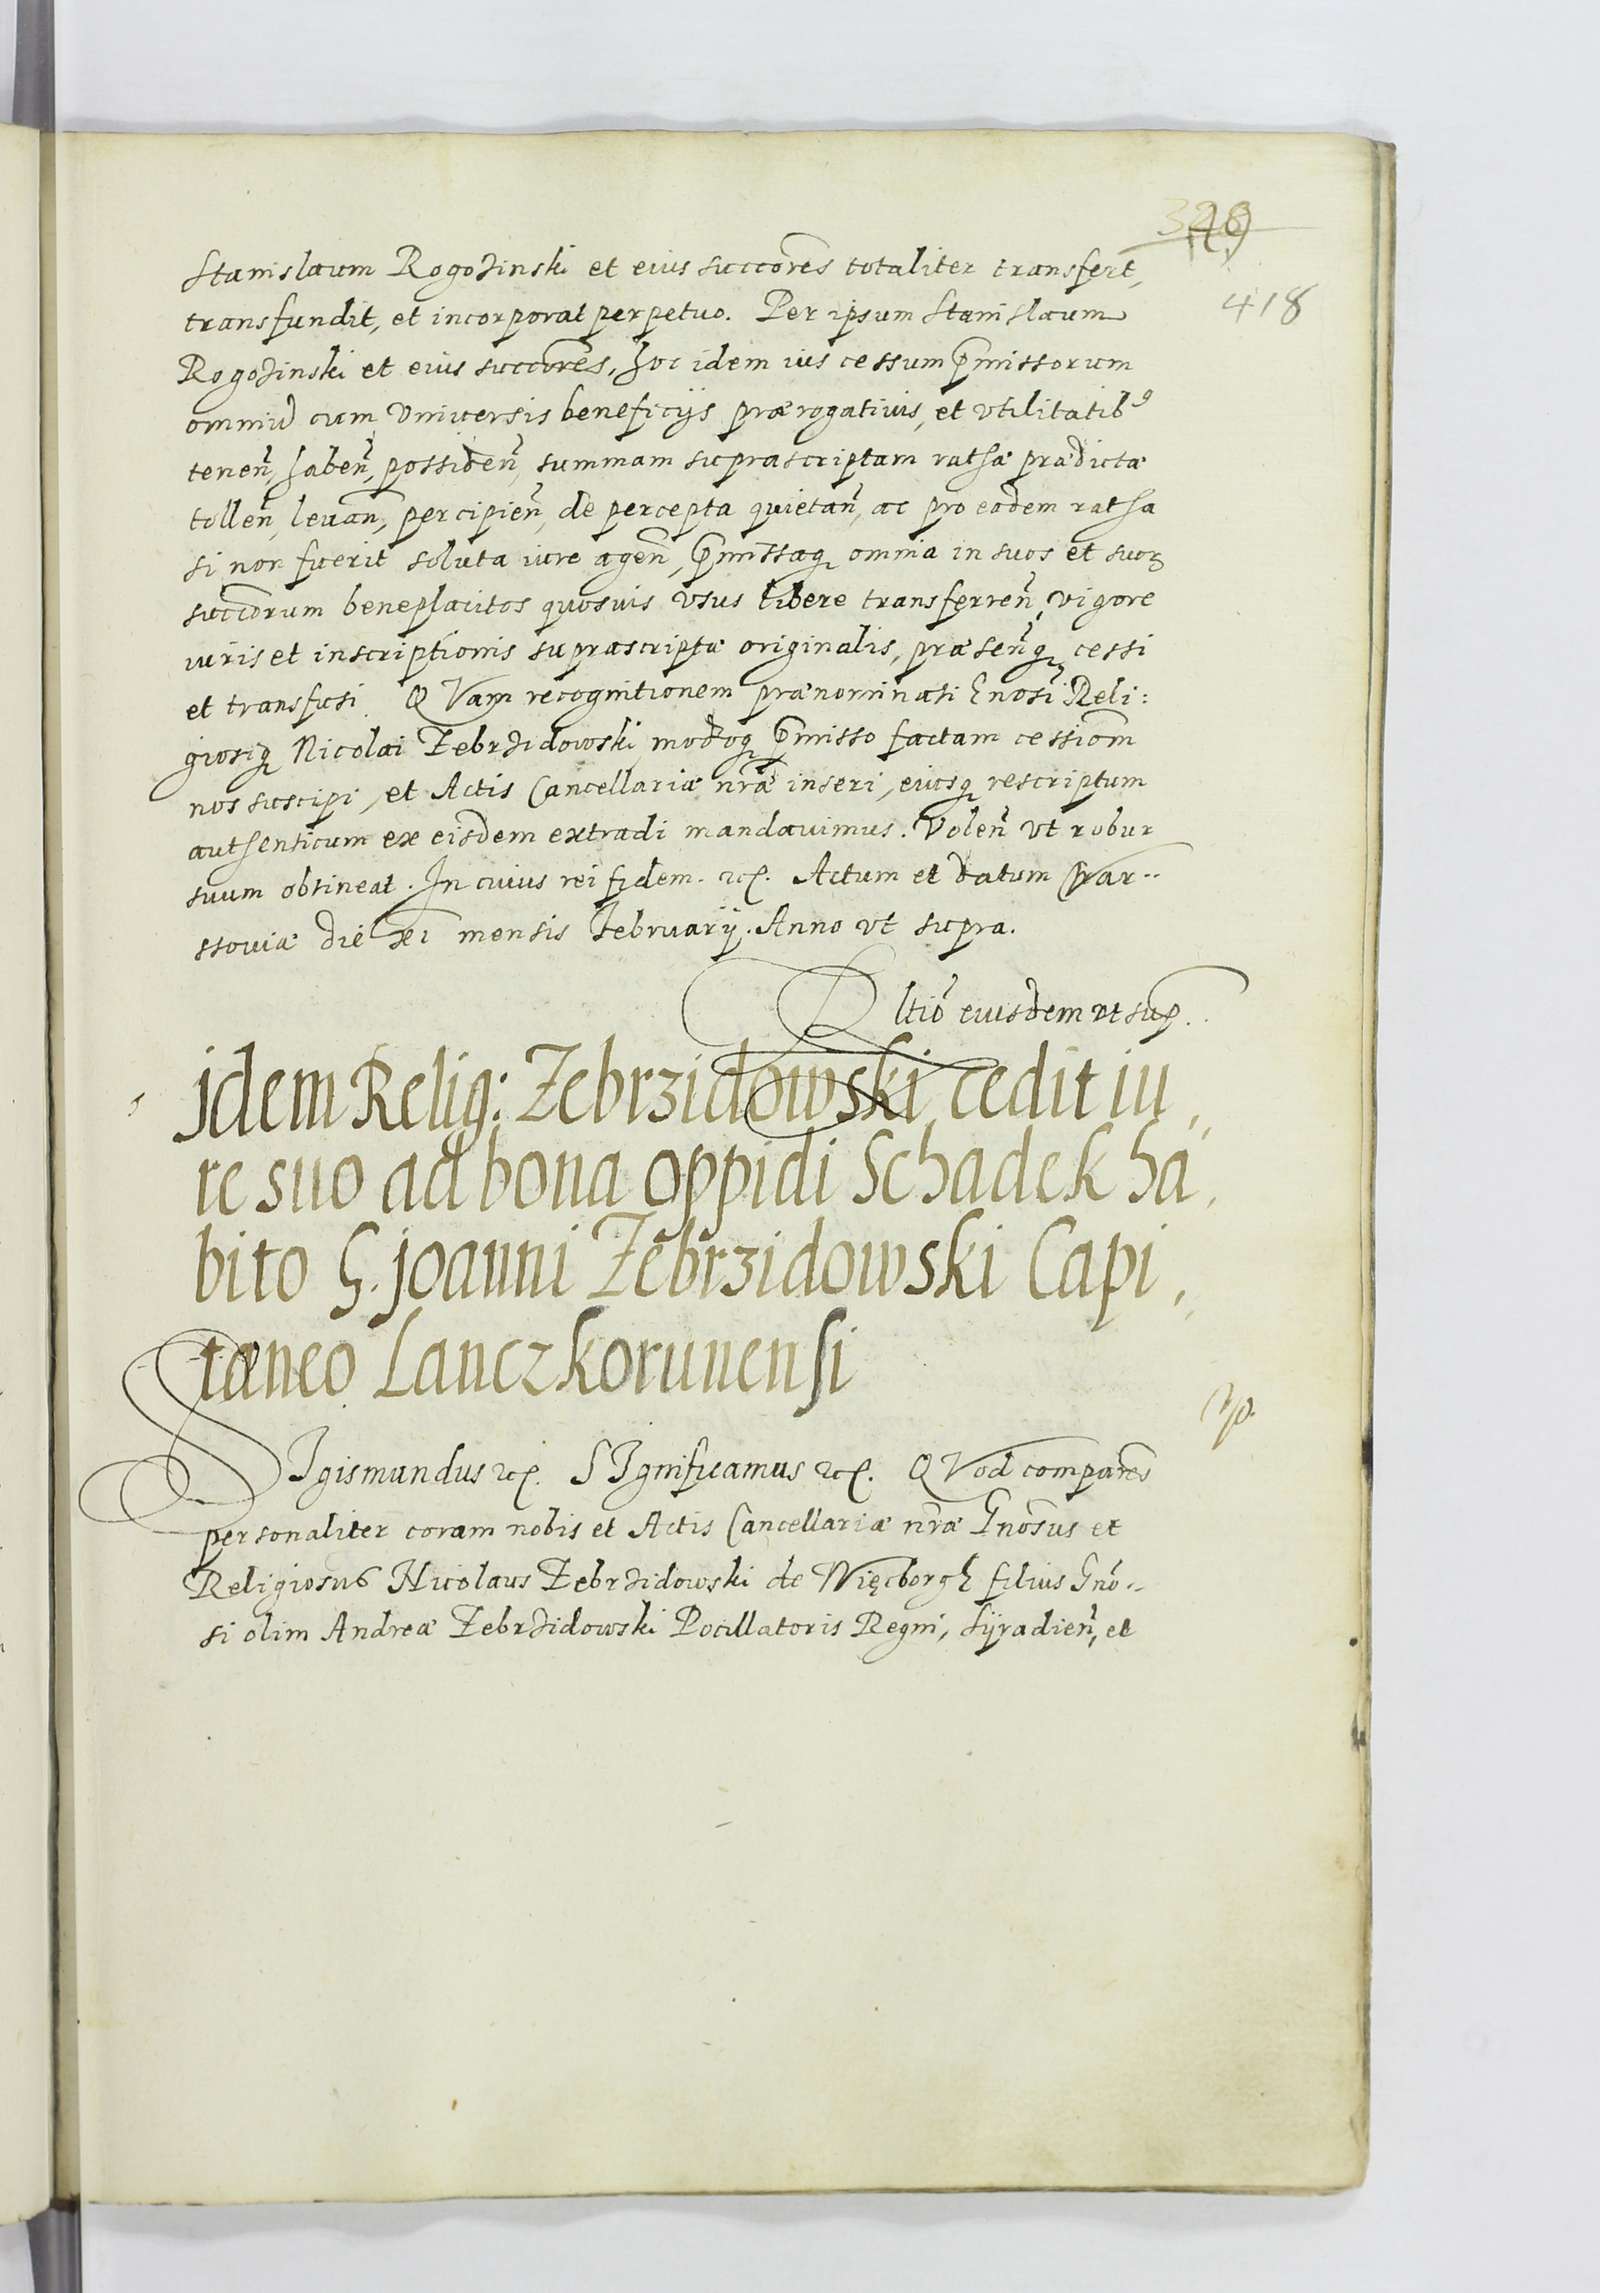 418
Stanislaum Rogozinski et eius succores totaliter transfert,
transfundit, et incorporat perpetuo. Per ipsum Stanislaum
Rogozinski et eius succores, hoc idem ius cessum pmissorum
omniu cum Vniuersis beneficijs prærogatiuis, et vtilitatib9
tenen, haben, possiden, summam suprascriptam rathæ prædictæ
tollen, leuan, percipien, de percepta quietan, ac pro eadem ratha
si non fuerit soluta iure agen, pmissaq omnia in suos et suor
succorum beneplacitos quosuis vsus libere transferren, vigore
iuris et inscriptionis suprascriptæ originalis, præsenq cessi
et transfusi. QVam recognitionem prænominati Gnosi Reli:
giosiq Nicolai Zebrzidowski modoq pmisso factam cessiom
nos suscipi, et Actis Cancellariæ nræ inseri, eiusq rescriptum
authenticum ex eisdem extradi mandauimus. Volen vt robur
suum obtineat. In cuius rei fidem. etc. Actum et datum War..
ssouiæ die xi mensis Februarij. Anno vt supra.
Rltio eiusdem vt sup.
jdem Relig: Zebrzidowski cedit iu,,
re suo ad bona oppidi Schadek ha,,
bito G. joanni Zebrzidowski Capi,,
taneo Lanczkorunensi
SIgismundus etc. SIgnificamus etc. QVod compares
personaliter coram nobis et Actis Cancellariæ nræ Gnosus et
Religiosus Nicolaus Zebrzidowski de Więcborgh filius Gno..
si olim Andreæ Zebrzidowski Pocillatoris Regni, Syradien, et